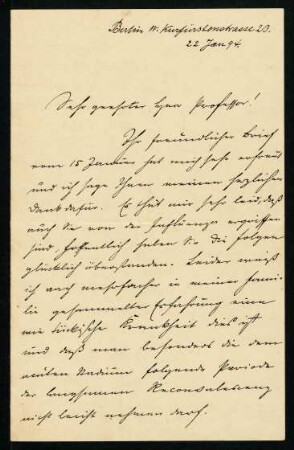 Berlin W. Kurfürstenstrasse 20.
22 Jan 94.
Sehr geehrter Herr Professor!
Ihr freundlicher Brief
vom 15 Januar hat mich sehr erfreut
und ich sage Ihnen meinen herzlichen
Dank dafür. Es thut mir sehr leid, daß
auch Sie von der Influenza ergriffen
sind, hoffentlich haben Sie die Folgen
glücklich überstanden. Leider weiß
ich aus mehrfacher in meiner Fami-
lie gesammelter Erfahrung eine
wie tückische Krankheit dieß ist
und daß man besonders die dem
Stadium folgende Periode
der langsamen Reconvalescenz
nicht leicht nehmen darf.